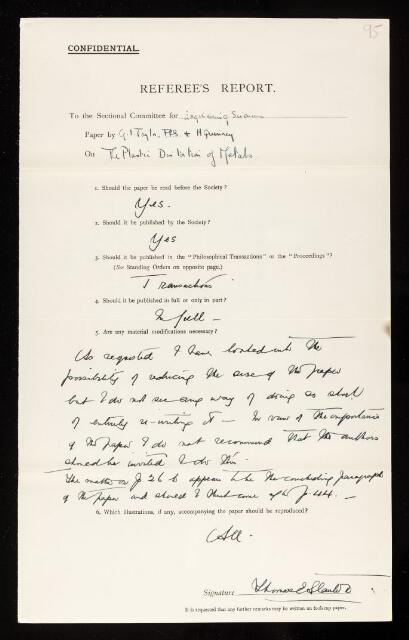 95
CONFIDENTIAL.
REFEREE'S REPORT.
To the Sectional Committee for Engineering Sciences
Paper by G. I Taylor, FRS. & H Quinney
On The Plastic Distortion of Metals
1. Should the paper be read before the Society?
Yes.
2. Should it be published by the Society?
Yes
3. Should it be published in the "Philosophical Transactions" or the "Proceedings"?
(See Standing Orders on opposite page.)
Transactions
4. Should it be published in full or only in part?
In full —
5. Are any material modifications necessary?
As requested I have looked into the
possibility of reducing the size of the paper
but I do not see any way of doing so short
of entirely re-writing it — In view of the importance
of the paper I do not recommend that the authors
should be invited to do this
The matter on p 26 b appears to be the concluding paragraph
of the paper and should I think come after p. 44. —
6. Which illustrations, if any, accompanying the paper should be reproduced?
All.
Signature Thomas E Stanton
It is requested that any further remarks may be written on foolscap paper.